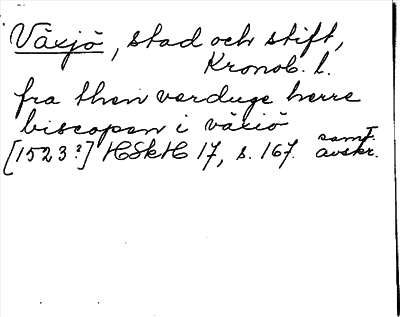 Växjö, stad och stift,
Kronob. l.
fra then verduge herre
biscopen i växiö
[1523?] HSkH 17, s. 167. samt. avskr.